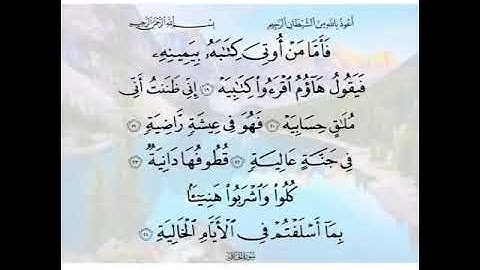 أعوذ بالله من الشيطان الرجيم
بسم الله الرحمن الرحيم
فَأَمَّا مَنْ أُوتِىَ كِتَٰبَهُۥ بِيَمِينِهِۦ
فَيَقُولُ هَآؤُمُ ٱقْرَءُوا۟ كِتَٰبِيَهْ ١٩ إِنِّى ظَنَنتُ أَنِّى
مُلَٰقٍ حِسَابِيَهْ ٢٠ فَهُوَ فِى عِيشَةٍ رَّاضِيَةٍ ٢١
فِى جَنَّةٍ عَالِيَةٍ ٢٢ قُطُوفُهَا دَانِيَةٌ ٢٣
كُلُوا۟ وَٱشْرَبُوا۟ هَنِيٓـًٔۢا
بِمَآ أَسْلَفْتُمْ فِى ٱلْأَيَّامِ ٱلْخَالِيَةِ ٢٤
سورة الحاقة